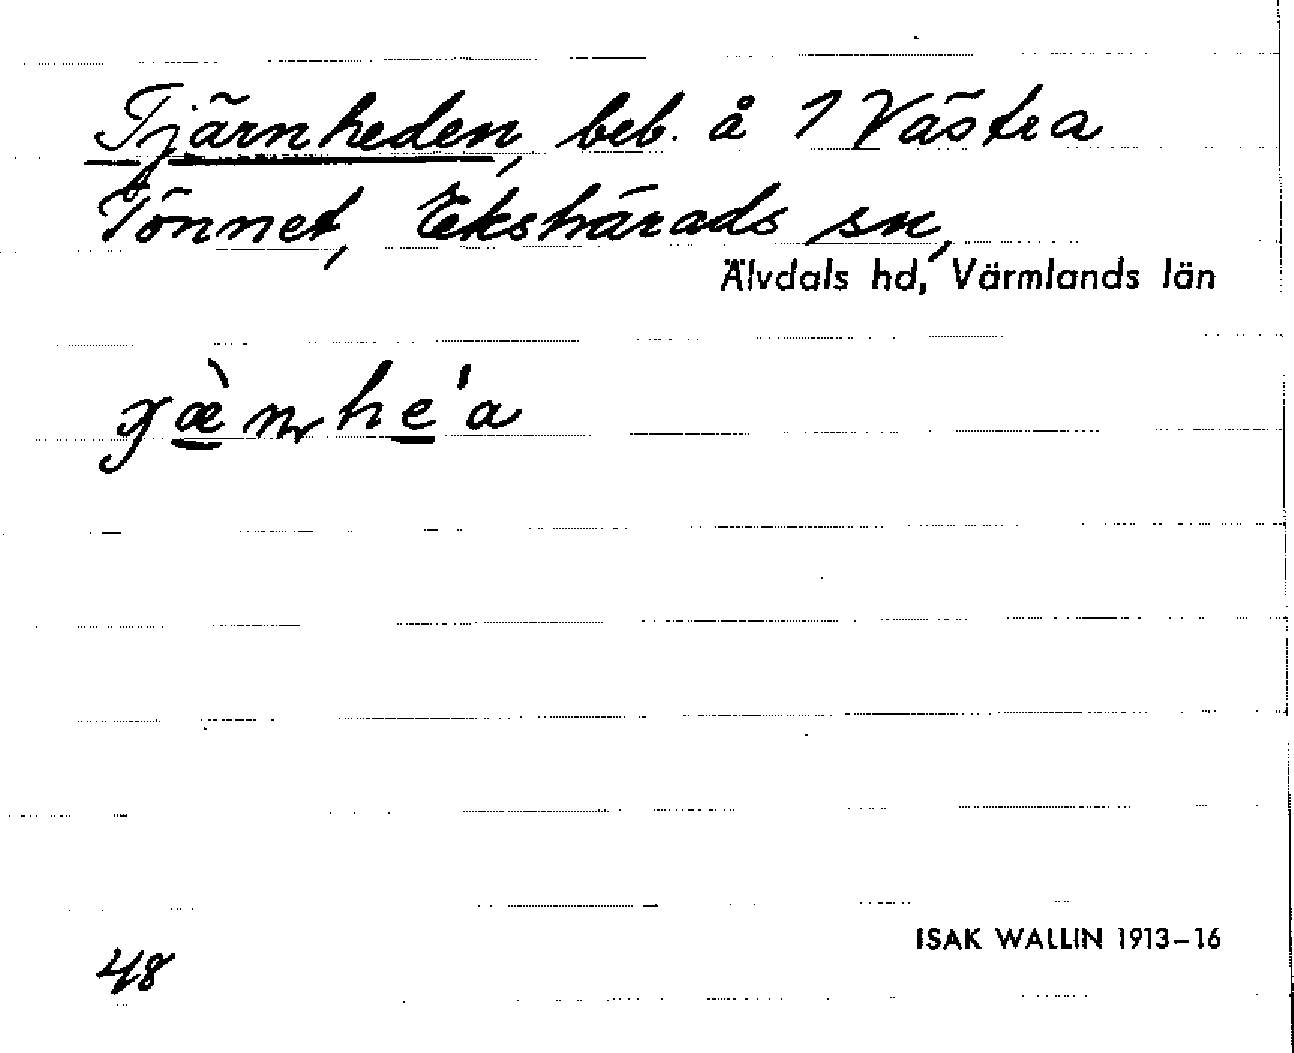 Tjärnheden, beb. å 1 Västra
Tönnet, Ekshärads sn,
Älvdals hd, Värmlands län
48
ISAK WALLIN 1913–16